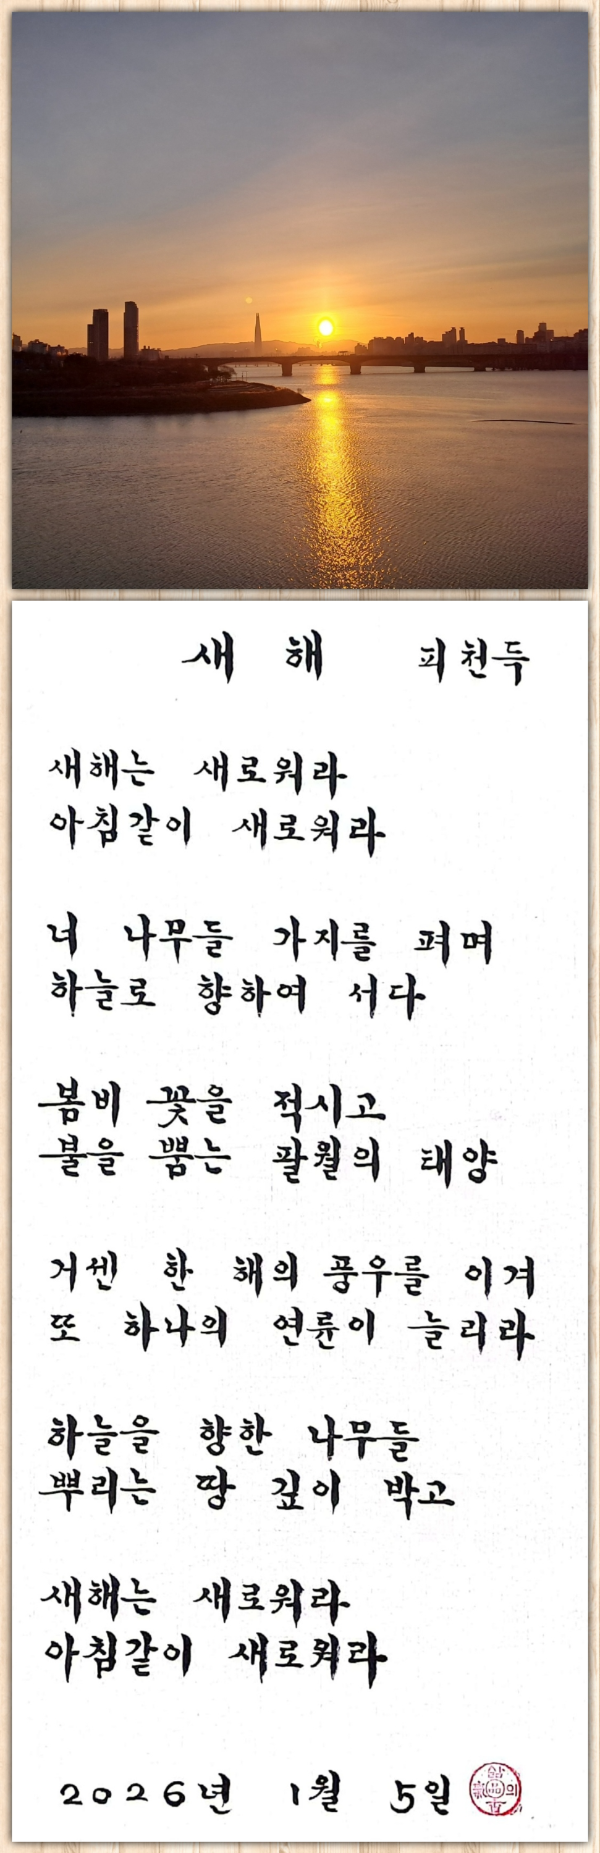 새 해 피천득
새해는 새로워라
아침같이 새로워라
너 나무들 가지를 펴며
하늘로 향하여 서다
봄비 꽃을 적시고
불을 뿜는 팔월의 태양
거센 한 해의 풍우를 이겨
또 하나의 연륜이 늘리라
하늘을 향한 나무들
뿌리는 땅 깊이 박고
새해는 새로워라
아침같이 새로워라
2026년 1월 5일